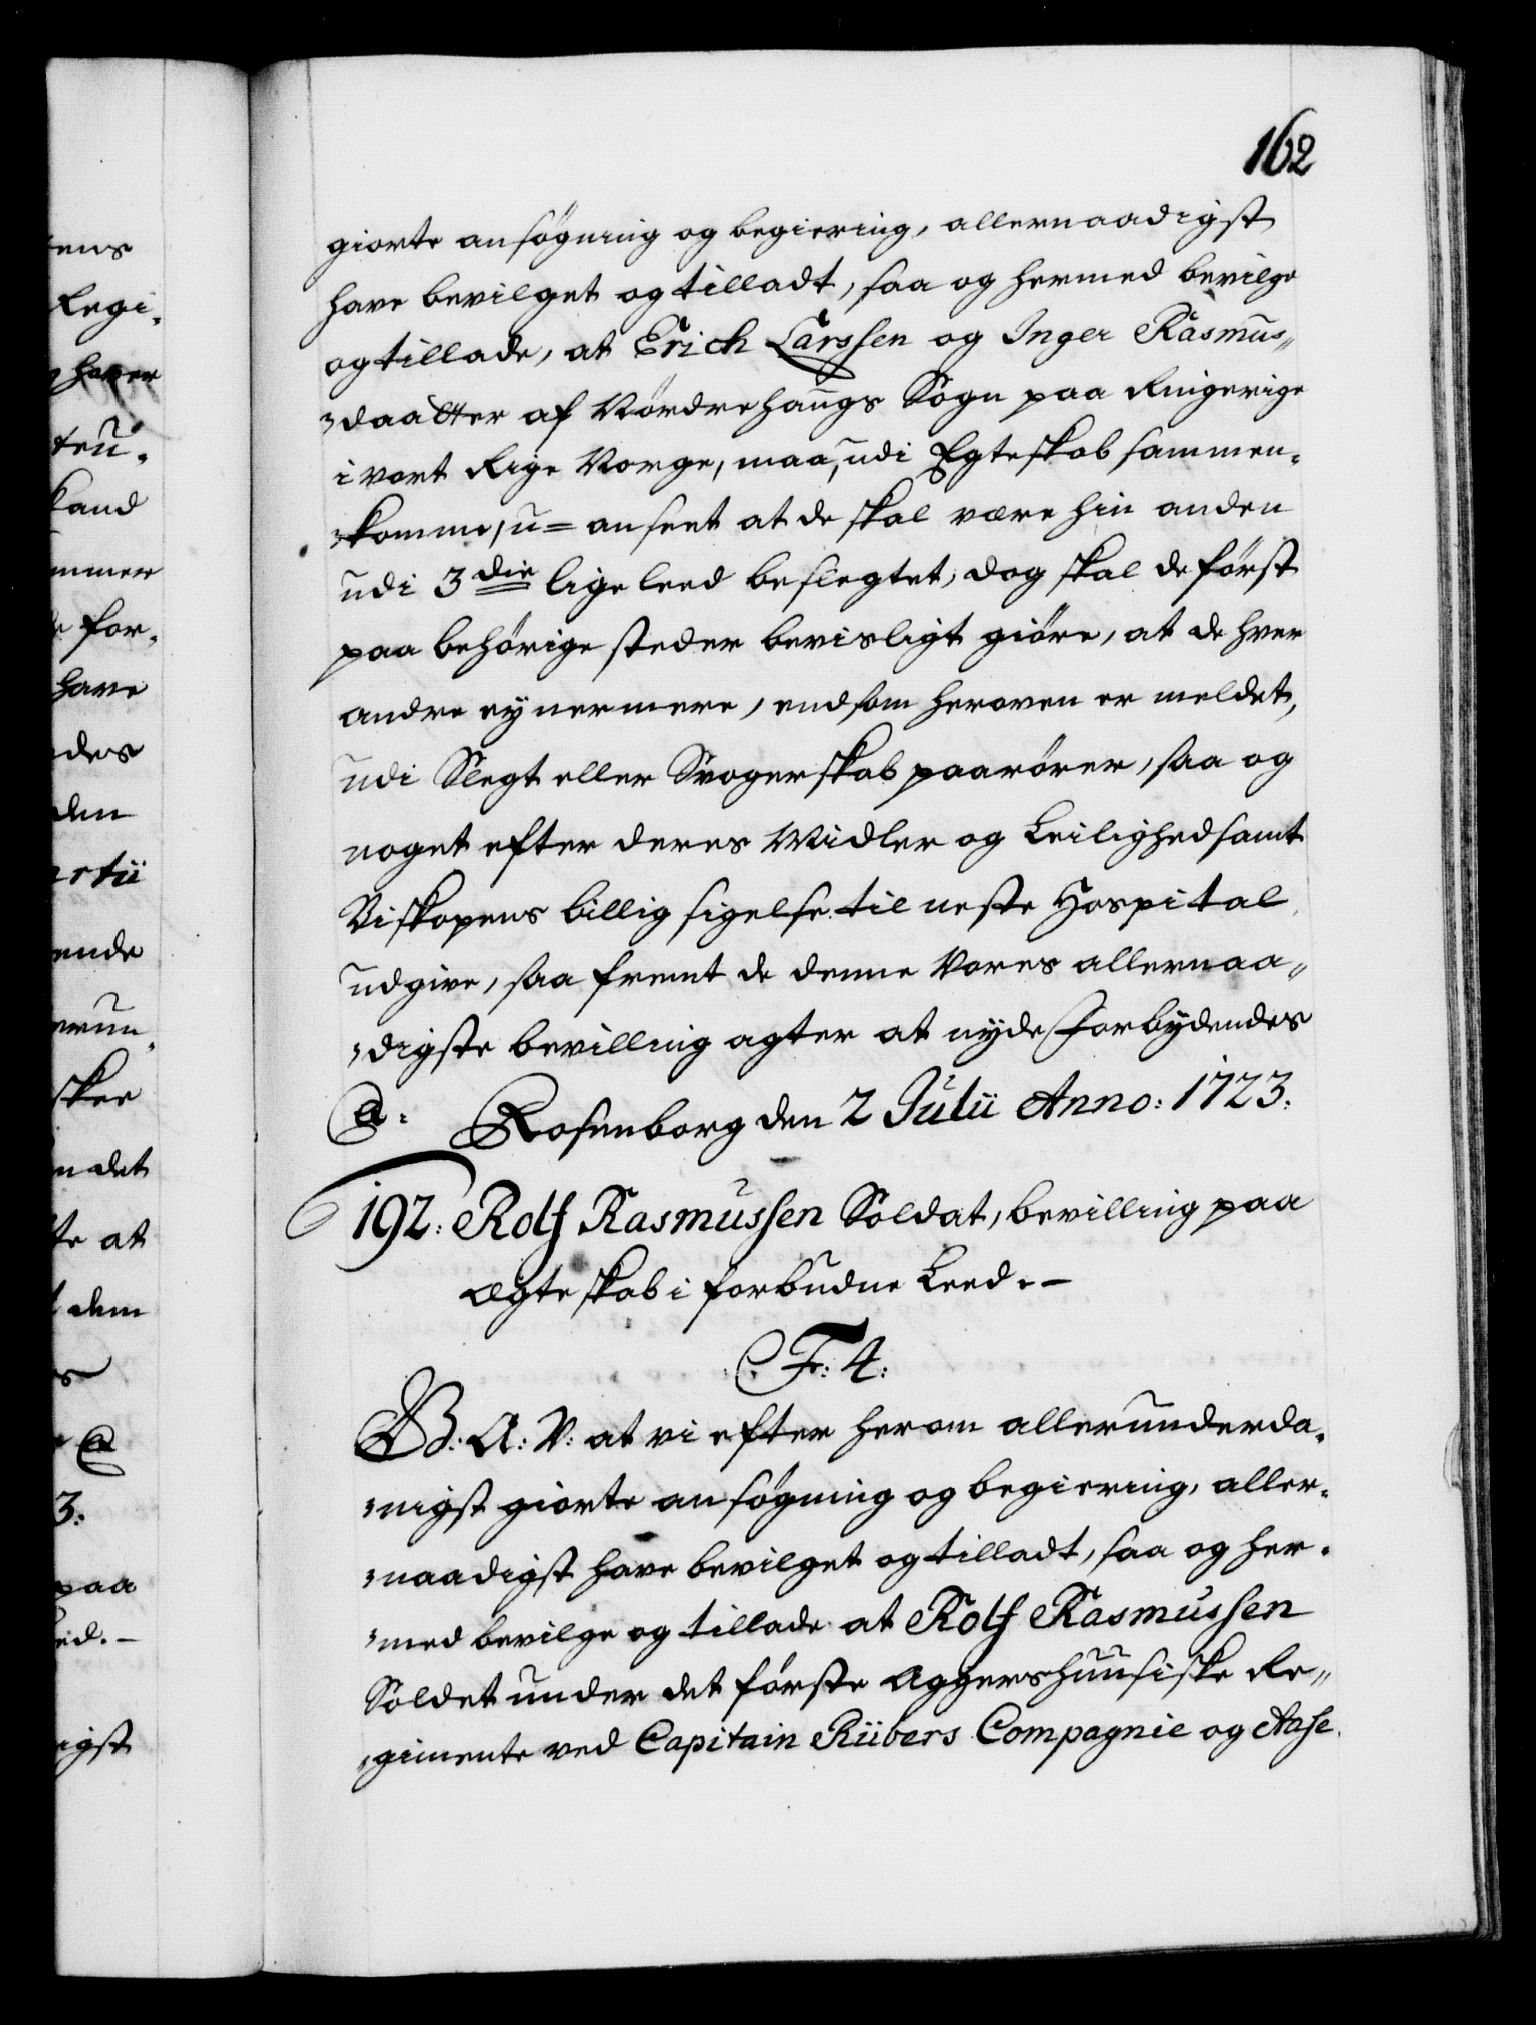 162
giorte ansøgning og begiering, allernaadigst
have bevilget og tilladt, saa og hermed bevilge
og tillade, at Erich Larssen og Inger Rasmus„
„daatter af Nordrehaugs Sogn paa Ringerige
i vort Rige Norge, maa, udi Egteskab sammen„
„komme, u= anseet at de skal være hin anden
udi 3die lige leed beslegtet, dog skal de først
paa behørige steder bevisligt giøre, at de hver
andre ey nermere, end som heroven er meldet,
udi Slegt eller Svogerskab paarører, saa og
noget efter deres Midler og Leilighed samt
Biskopens billig sigelse til neste Hospital
udgive, saa fremt de denne Vores allernaa„
„digste bevilling agter at nyde Forbydendes
Rosenborg den 2 Julii Anno: 1723.
192. Rolf Rasmussen Soldat, bevilling paa
Ægteskab i forbudne Leed. –
F: 4:
G: A: V: at vi efter herom allerunderda„
„nigst giorte ansøgning og begiering, aller„
„naadigst have bevilget og tilladt, saa og her„
„med bevilge og tillade at Rolf Rasmussen
Soldet under det første Aggershuusiske Re„
„gimente ved Capitain Rübers Compagnie og Aase